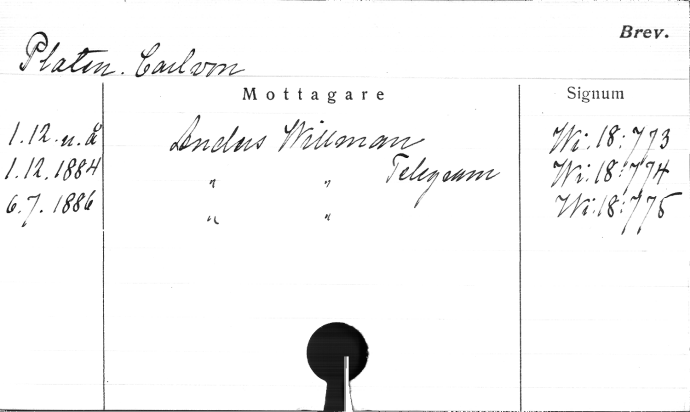 Brev.
Platen. Carl von
Mottagare Signum
1.12. u.å Anders Willman Wi:18:773
1.12.1884 " " Telegram Wi:18:774
6.7.1886 " " Wi:18:775